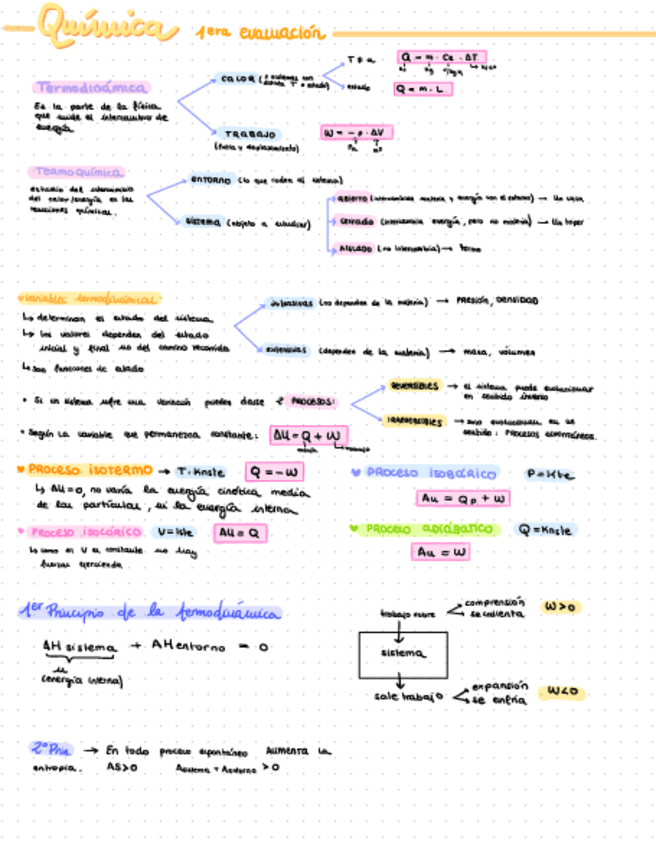 Química 1era evaluación
Termodinámica
Es la parte de la física
que mide el intercambio de
energía
CALOR
T ≠ a
Q = m · Ce · ΔT
estado
Q = m · L
TRABAJO
(fuerza y desplazamiento)
W = - P · ΔV
Termoquímica
estudio del intercambio
del calor/energía en las
reacciones químicas.
ENTORNO (lo que rodea al sistema)
Sistema (objeto a estudiar)
abierto (intercambia materia y energía con el entorno) → Un vaso
Cerrado (intercambia energía, pero no materia) → Un táper
AISLADO (no intercambia) → termo
variables termodinámicas
↳ determinan el estado del sistema
↳ los valores dependen del estado
inicial y final no del camino recorrido
↳ son funciones de estado
intensivas (no dependen de la materia) → PRESIÓN, DENSIDAD
extensivas (dependen de la materia) → masa, volumen
• Si un sistema sufre una variación pueden darse PROCESOS:
REVERSIBLES → el sistema puede evolucionar
en sentido inverso
IRREVERSIBLES → solo evolucionan en un
sentido: PROCESOS ESPONTÁNEOS.
• Según la variable que permanezca constante: ΔU = Q + W
PROCESO ISOTERMO → T: Knste Q = -W
↳ ΔU = 0, no varía la energía cinética media
de las partículas, ni la energía interna
PROCESO ISOBÁRICO P = Kte
Δu = Qp + W
PROCESO ISOCÓRICO V = kte ΔU = Q
↳ como el V es constante no hay
fuerzas ejerciendo
PROCESO ADIÁBATICO Q = Knste
Δu = W
1er Principio de la termodinámica
ΔH sistema + ΔH entorno = 0
u
(energía interna)
trabajo entra
comprensión
se calienta
W > 0
sistema
sale trabajo
expansión
se enfría
W < 0
2º Prin. → En todo proceso espontáneo AUMENTA la
entropía. ΔS > 0 Δsistema + Δentorno > 0